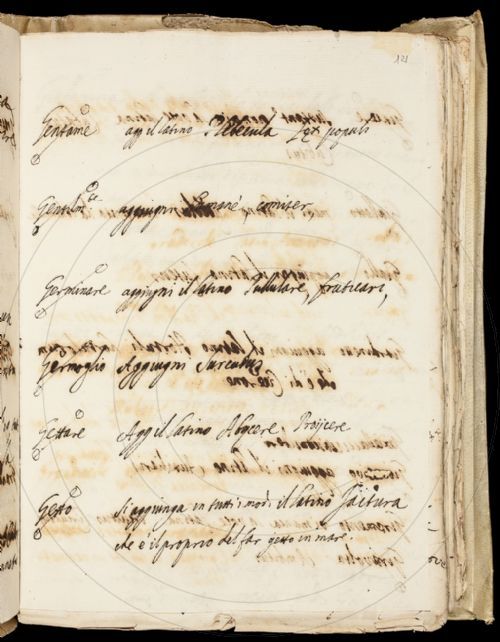 121
Gentame agg il latino Plebecula fex populi
Gentilmte aggiugni humane, comiter
Germinare aggiugni il latino Pullulare, fruticari,
Germoglio Aggiugni Surculus
Gettare Agg il latino Abijcere Proijcere
Getto Si aggiunga in tutti i modi il latino Jactura
che è il proprio del far getto in mare.